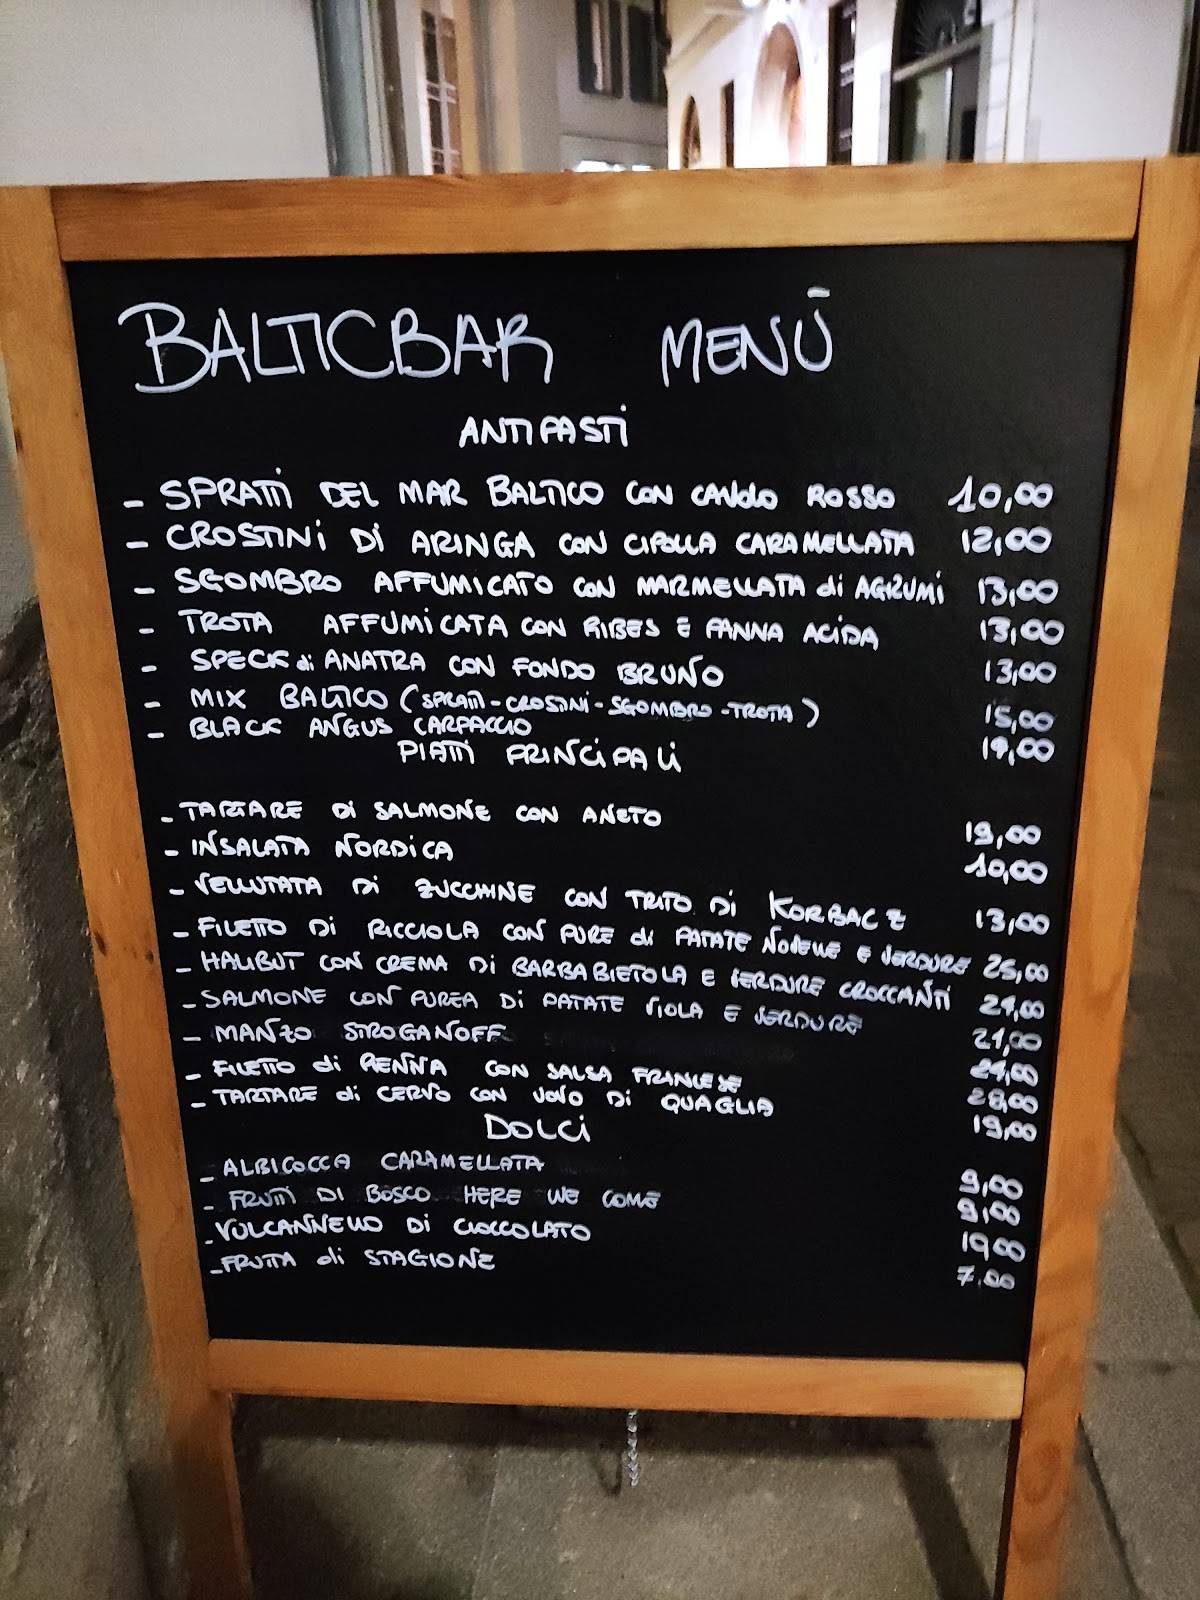 BALTICBAR MENÙ
ANTIPASTI
- SPRATTI DEL MAR BALTICO CON CAVOLO ROSSO 10,00
- CROSTINI DI ARINGA CON CIPOLLA CARAMELLATA 12,00
- SGOMBRO AFFUMICATO CON MARMELLATA di AGRUMI 13,00
- TROTA AFFUMICATA CON RIBES E PANNA ACIDA 13,00
- SPECK di ANATRA CON FONDO BRUNO 13,00
- MIX BALTICO (SPRATTI-CROSTINI-SGOMBRO-TROTA) 15,00
- BLACK ANGUS CARPACCIO 19,00
PIATTI PRINCIPALI
- TARTARE Di SALMONE CON ANETO 19,00
- INSALATA NORDICA 10,00
- VELLUTATA Di ZUCCHINE CON TRITO Di KORBACZ 13,00
- FILETTO Di RICCIOLA CON PURE di PATATE NOVELLE E VERDURE 25,00
- HALIBUT CON CREMA Di BARBABIETOLA E VERDURE CROCCANTI 24,00
- SALMONE CON PUREA Di PATATE VIOLA E VERDURE 21,00
- MANZO STROGANOFF 24,00
- FILETTO di RENNA CON SALSA FRANCESE 28,00
- TARTARE di CERVO CON UOVO Di QUAGLIA 19,00
DOLCI
- ALBICOCCA CARAMELLATA 9,00
- FRUTTI DI BOSCO HERE WE COME 9,00
- VULCANNELLO Di CIOCCOLATO 10,00
- FRUTTA di STAGIONE 7,00